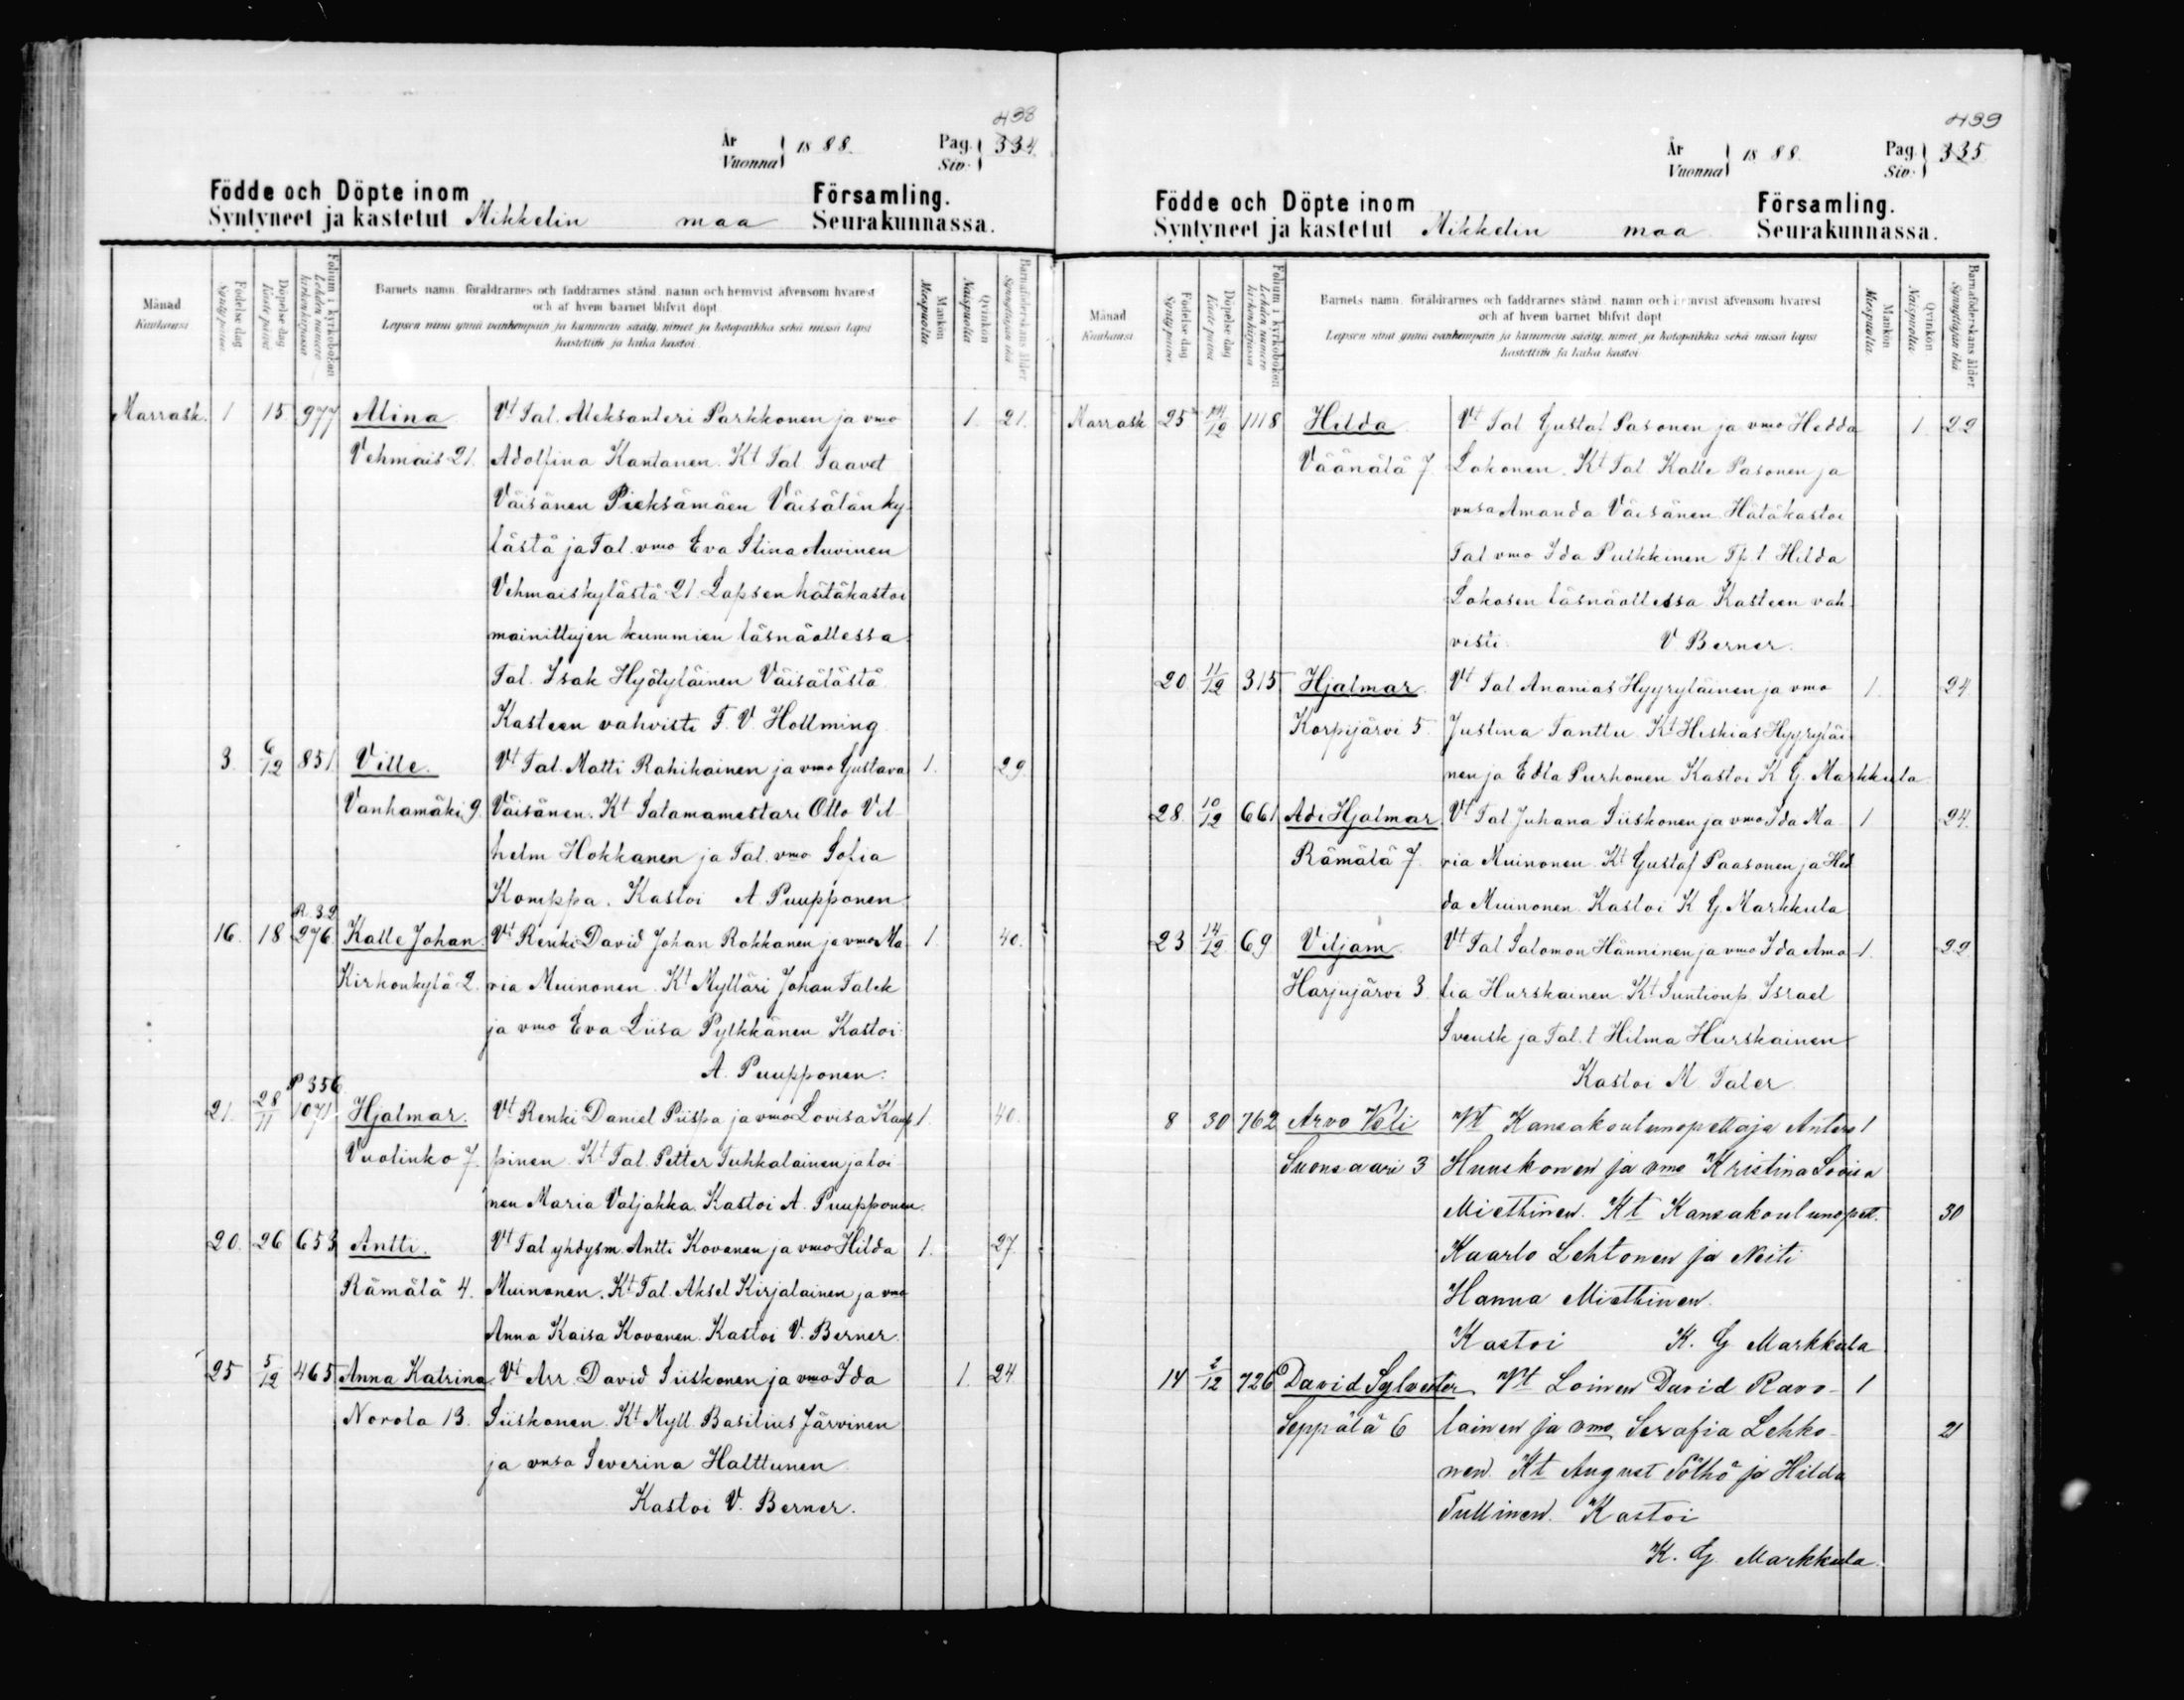 438
År Vuonna 1888. Pag. Siv. 334.
Födde och Döpte inom Församling.
Syntyneet ja kastetut Mikkelin maa Seurakunnassa.
Månad Kuukausi
Födelse dag Synty päivä
Döpelse dag Kaste päivä
Folium i kyrkoboken Lehden numero kirkonkirjassa
Barnets namn, föräldrarnes och faddrarnes stånd, namn och hemvist äfvensom hvarest
och af hvem barnet blifvit döpt
Lapsen nimi ynnä vanhempain ja kummein sääty, nimet ja kotopaikka sekä missä lapsi
kastettiin ja kuka kastoi
Mankön Miespuolta
Qvinkön Naispuolta
Barnaföderskans ålder Synnyttäjän ikä
Marrask. 1 15 977 Alina Vt Tal. Aleksanteri Parkkonen ja vmo 1. 21.
Vehmais 21. Adolfina Kantanen. Kt Tal. Taavet
Väisänen Pieksämäen Väisälän ky-
lästä ja Tal. vmo Eva Stina Auvinen
Vehmaiskylästä 21. Lapsen hätäkastoi
mainittujen kummien läsnäollessa
Tal. Isak Hyötyläinen Väisälästä
Kasteen vahvisti F. V. Hollming
3. 6/12 851 Ville. Vt Tal. Matti Rahikainen ja vmo Gustava 1. 29.
Vanhamäki 9. Väisänen. Kt Satamamestari Otto Vil-
helm Hokkanen ja Tal. vmo Sofia
Komppa. Kastoi A. Puupponen
R. 32
16. 18 276. Kalle Johan. Vt Renki David Johan Rokkanen ja vmo Ma- 1. 40.
Kirkonkylä 2. ria Muinonen. Kt Mylläri Johan Falck
ja vmo Eva Liisa Pylkkänen Kastoi
A. Puupponen.
P 356
21. 28/11 1071 Hjalmar. Vt Renki Daniel Piispa ja vmo Lovisa Kaup- 1. 40.
Vuolinko 7. pinen. Kt Tal. Petter Tuhkalainen ja loi-
nen Maria Valjakka. Kastoi A. Puupponen.
20. 26 653 Antti. Vt Tal yhdysm. Antti Kovanen ja vmo Hilda 1. 27.
Rämälä 4. Muinonen. Kt Tal. Aksel Kirjalainen ja vmo
Anna Kaisa Kovanen. Kastoi V. Berner.
25 5/12 465 Anna Katrina Vt Arr. David Siiskonen ja vmo Ida 1. 24.
Norola 13. Siiskonen. Kt Myll. Basilius Järvinen
ja vnsa Severina Halttunen
Kastoi V. Berner.
439
År Vuonna 1888. Pag. Siv. 335
Födde och Döpte inom Församling.
Syntyneet ja kastetut Mikkelin maa Seurakunnassa.
Månad Kuukausi
Födelse dag Synty päivä
Döpelse dag Kaste päivä
Folium i kyrkoboken Lehden numero kirkonkirjassa
Barnets namn, föräldrarnes och faddrarnes stånd, namn och hemvist äfvensom hvarest
och af hvem barnet blifvit döpt
Lapsen nimi ynnä vanhempain ja kummein sääty, nimet ja kotopaikka sekä missä lapsi
kastettiin ja kuka kastoi
Mankön Miespuolta
Qvinkön Naispuolta
Barnaföderskans ålder Synnyttäjän ikä
Marrask 25 /12 1118 Hilda Vt Tal Gustaf Pasonen ja vmo Hedda 1. 22
Väänälä 7 Lokonen. Kt Tal Kalle Pasonen ja
vnsa Amanda Väisänen Hätäkastoi
Tal vmo Ida Pulkkinen Tp.t Hilda
Lokosen läsnäollessa. Kasteen vah-
visti V Berner.
20 11/12 315 Hjalmar. Vt Tal Ananias Hyyryläinen ja vmo 1. 24
Korpijärvi 5. Justina Tanttu Kt Heskias Hyyryläi-
nen ja Edla Purhonen Kastoi K. G. Markkula.
28. 10/12 661 Adi Hjalmar Vt Tal Juhana Siiskonen ja vmo Ida Ma- 1 24.
Rämälä 7. ria Muinonen. Kt Gustaf Paasonen ja Hed-
da Muinonen. Kastoi K G. Markkula
23 14/12 69 Viljam Vt Tal Salomon Hänninen ja vmo Ida Ama- 1. 22
Harjujärvi 3. lia Hurskainen. Kt Suntionp. Israel
Svensk ja Tal. t Hilma Hurskainen
Kastoi M. Taler
8 30 762 Arvo Veli Vt Kansakoulunopettaja Antero 1
Suonsaari 3 Huuskonen ja vmo Kristina Lovisa
Miettinen. Kt Kansakoulunopett. 30
Kaarlo Lehtonen ja Neiti
Hanna Miettinen.
Kastoi K. G Markkula
14 2/12 726 David Sylvester Vt Loinen David Ravo- 1
Seppälä 6 lainen ja vmo Serafia Lehko- 21
nen Kt August Pöthö ja Hilda
Tullinen. Kastoi
K. G. Markkula.